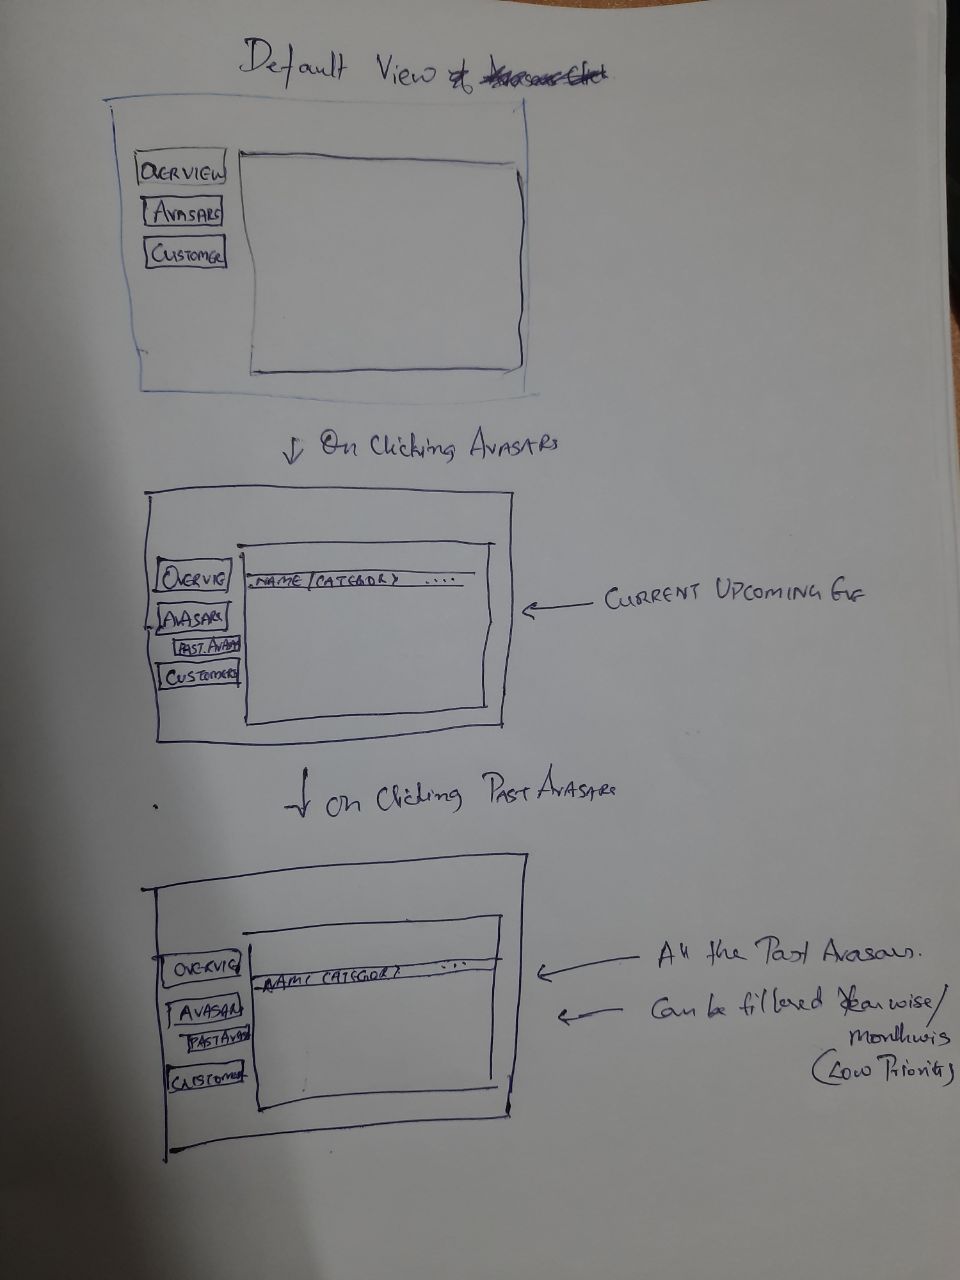 Default View of
OVERVIEW
AVASARS
CUSTOMER
On Clicking AVASARS
OVERVIE
AVASARS
PAST AVASA
CUSTOMERS
NAME / CATEGORY ....
CURRENT UPCOMING EVE
On Clicking PAST AVASARS
OVERVIE
AVASAR
PAST AVAS
CUSTOMER
NAME CATEGORY ...
All the Past Avasars.
Can be filtered Yearwise/
monthwis
(Low Priority)